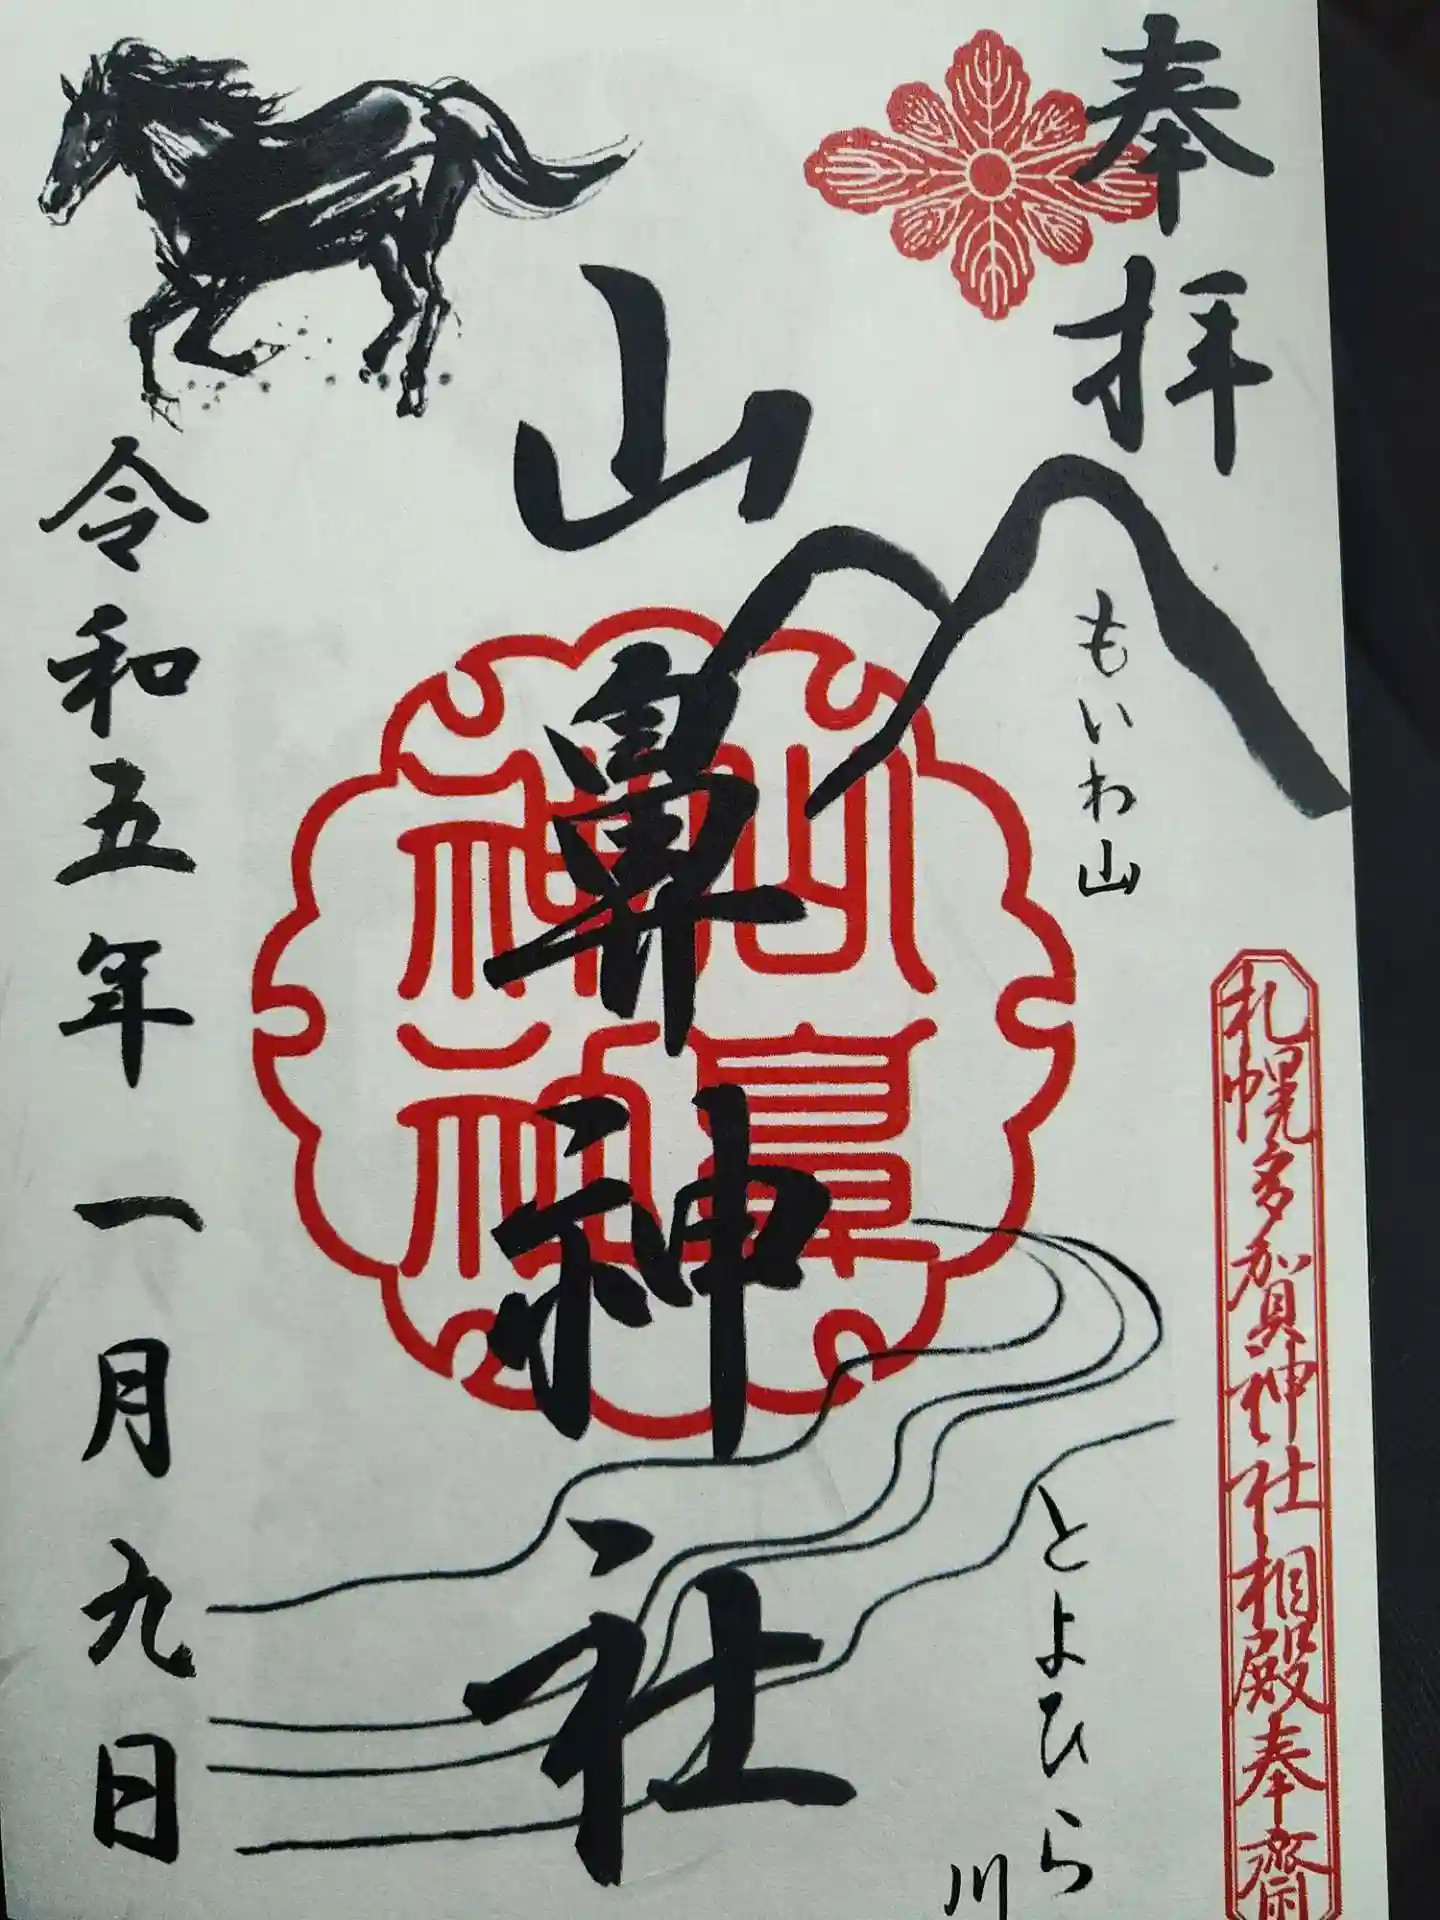 奉拝
もいわ山
札幌多賀神社相殿奉齋
とよひら川
山鼻神社
山鼻神社
令和五年一月九日